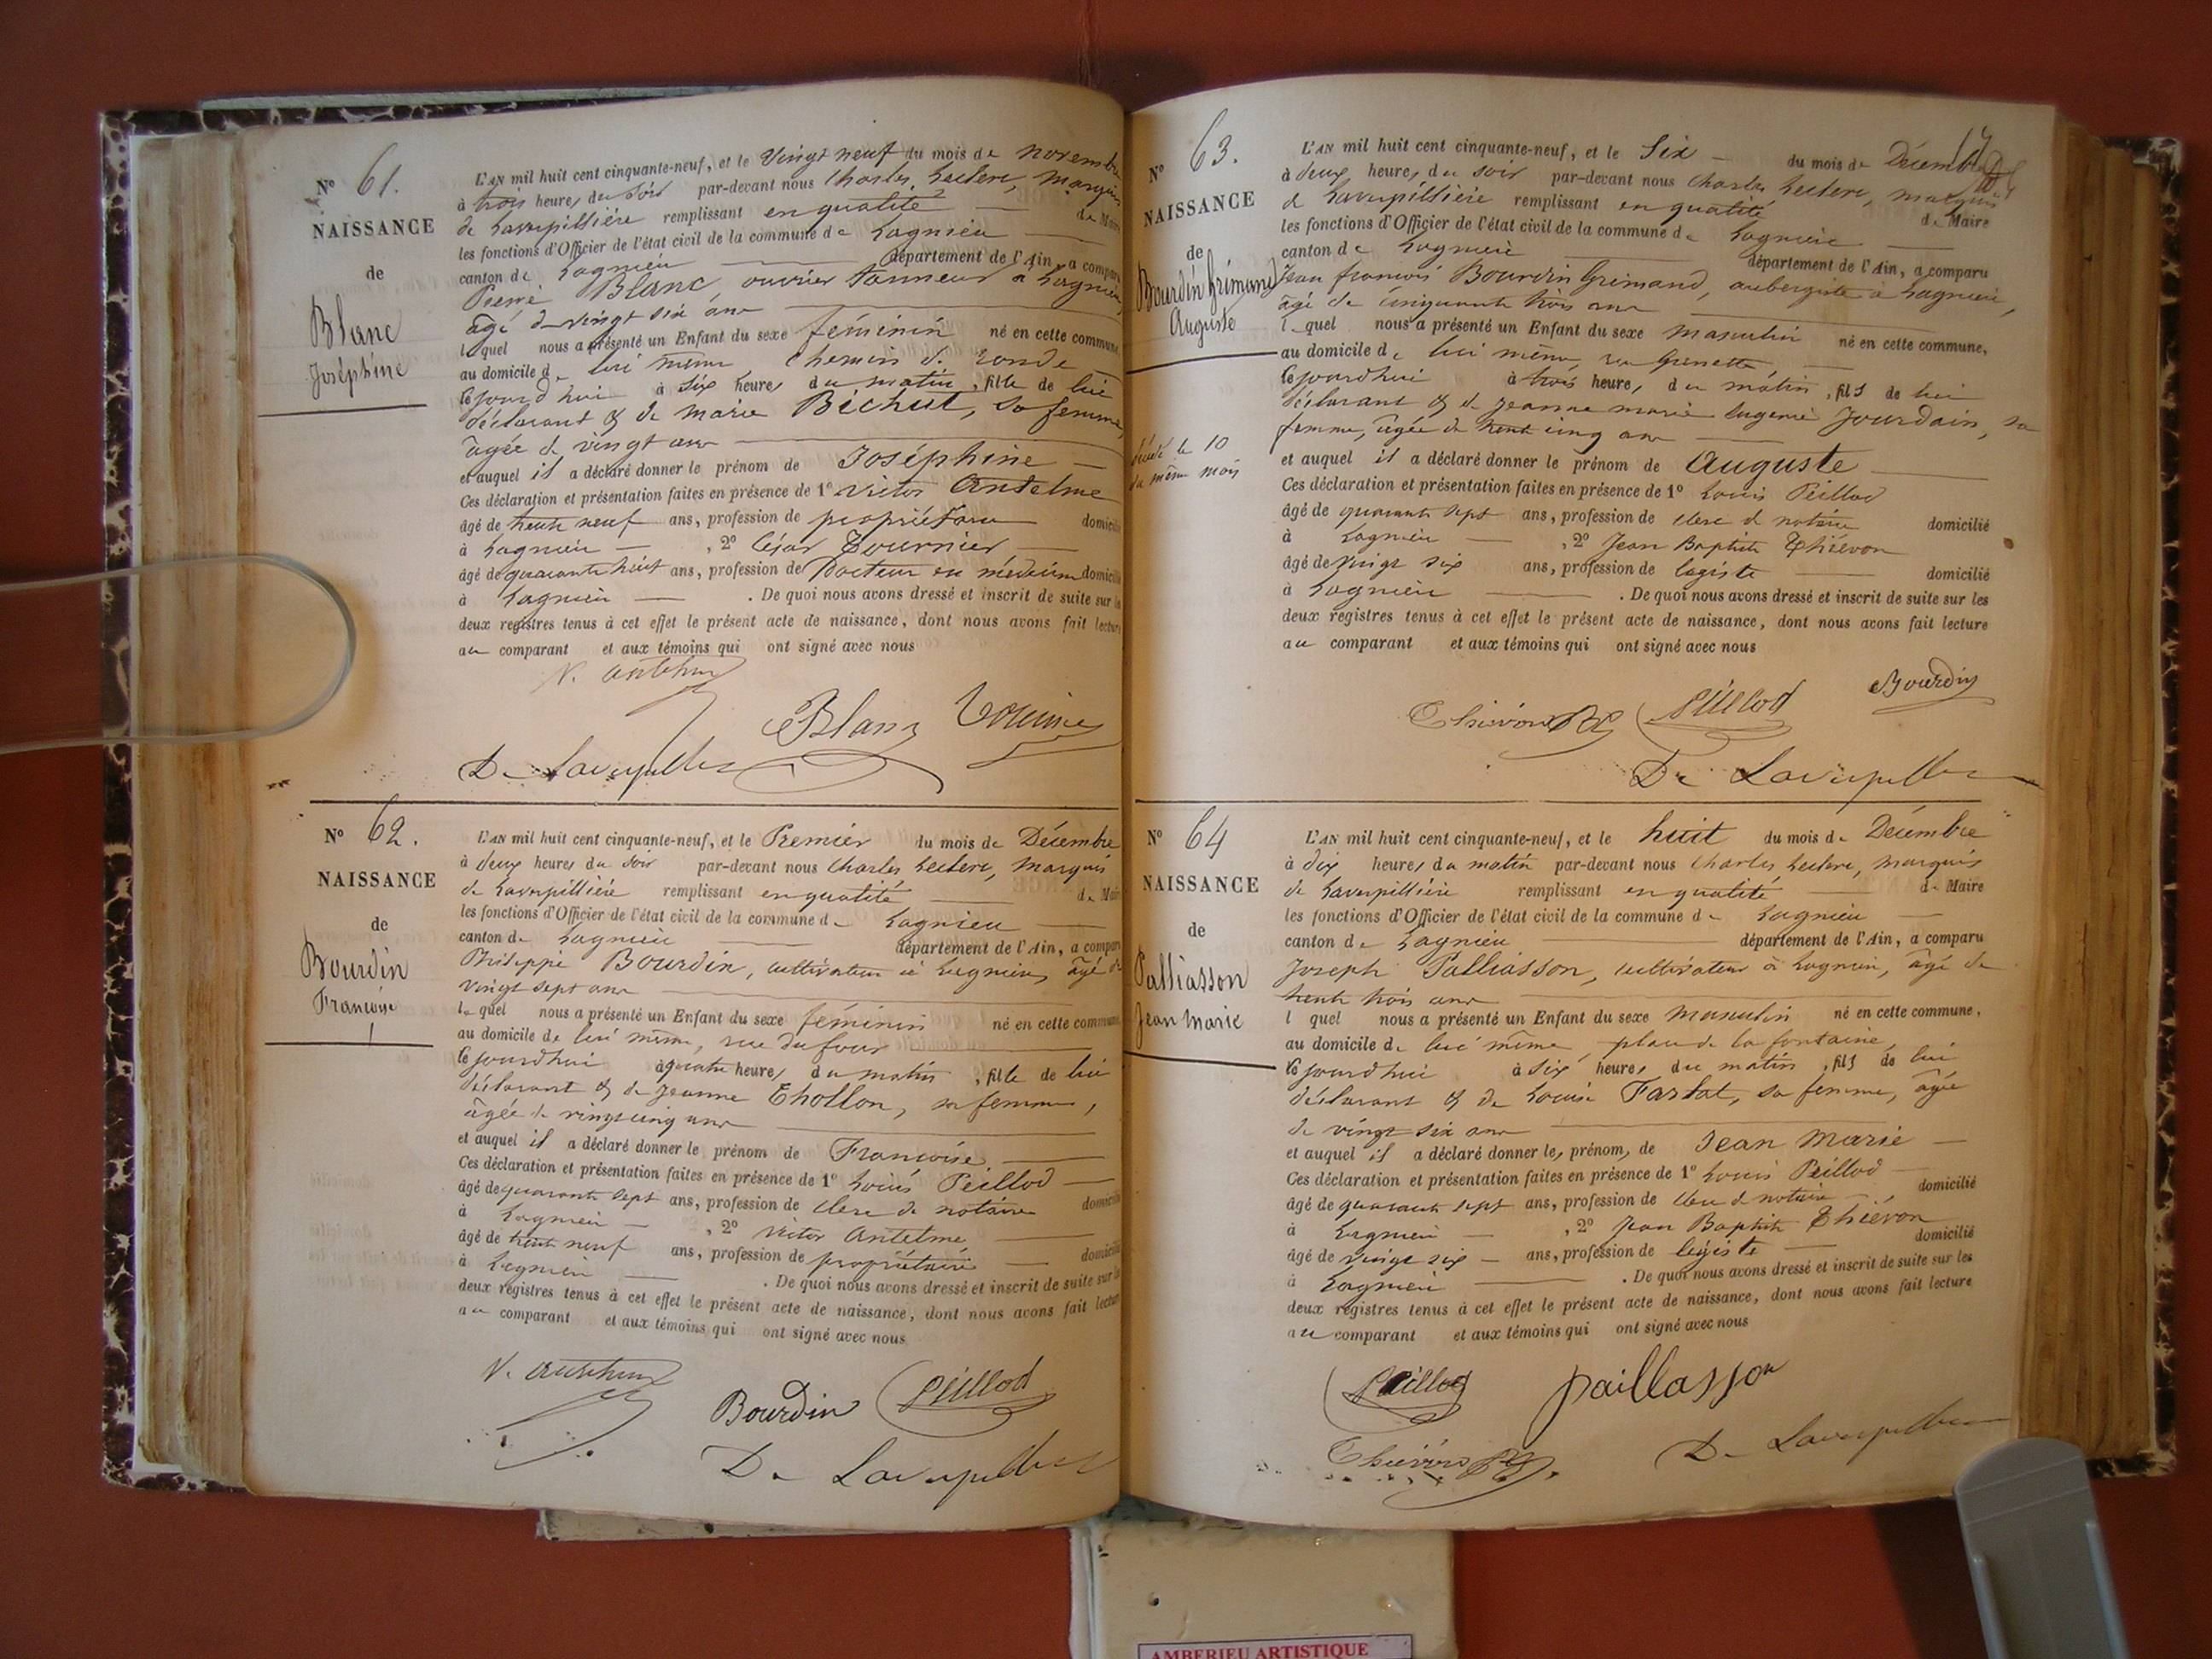 N° 61.
NAISSANCE
de
Blanc
Joséphine
L'AN mil huit cent cinquante-neuf, et le Vingt neuf du mois de novembre
à trois heures du soir par-devant nous Charles Leclerc, Marquis
de Laverpillière remplissant en qualité de Maire
les fonctions d'Officier de l'état civil de la commune de Lagnieu
canton de Lagnieu département de l'Ain, a comparu
Pierre Blanc, ouvrier tanneur à Lagnieu,
âgé de vingt six ans
lequel nous a présenté un Enfant du sexe féminin né en cette commune,
au domicile de lui même Chemin de ronde
Cejourd'hui à six heures du matin, fille de lui
déclarant & de marie Béchut, sa femme,
âgée de vingt ans
et auquel il a déclaré donner le prénom de Joséphine
Ces déclaration et présentation faites en présence de 1° Victor Antelme
âgé de trente neuf ans, profession de propriétaire domicilié
à Lagnieu , 2° César Tournier
âgé de quarante huit ans, profession de Docteur en médecine domicilié
à Lagnieu . De quoi nous avons dressé et inscrit de suite sur les
deux registres tenus à cet effet le présent acte de naissance, dont nous avons fait lecture
au comparant et aux témoins qui ont signé avec nous
V. Antelme
Blanc
De Laverpillière
N° 62.
NAISSANCE
de
Bourdin
Françoise
L'AN mil huit cent cinquante-neuf, et le Premier du mois de Décembre
à deux heures du soir par-devant nous Charles Leclerc, Marquis
de Laverpillière remplissant en qualité de Maire
les fonctions d'Officier de l'état civil de la commune de Lagnieu
canton de Lagnieu département de l'Ain, a comparu
Philippe Bourdin, cultivateur à Lagnieu, âgé de
vingt sept ans
lequel nous a présenté un Enfant du sexe féminin né en cette commune,
au domicile de lui même, rue du four
Cejourd'hui à quatre heures du matin, fille de lui
déclarant & de Jeanne Thollon, sa femme,
âgée de vingt cinq ans
et auquel il a déclaré donner le prénom de Françoise
Ces déclaration et présentation faites en présence de 1° Louis Peillod
âgé de quarante sept ans, profession de clerc de notaire domicilié
à Lagnieu , 2° Victor Antelme
âgé de trente neuf ans, profession de propriétaire domicilié
à Lagnieu . De quoi nous avons dressé et inscrit de suite sur les
deux registres tenus à cet effet le présent acte de naissance, dont nous avons fait lecture
au comparant et aux témoins qui ont signé avec nous
V. Antelme
Bourdin Peillod
De Laverpillière
N° 63.
NAISSANCE
de
Bourdin Grimand
Auguste
décédé le 10
du même mois
L'AN mil huit cent cinquante-neuf, et le Six du mois de Décembre
à deux heures du soir par-devant nous Charles Leclerc, marquis
de Laverpillière remplissant en qualité de Maire
les fonctions d'Officier de l'état civil de la commune de Lagnieu
canton de Lagnieu département de l'Ain, a comparu
Jean françois Bourdin Grimand, aubergiste à Lagnieu,
âgé de cinquante trois ans
lequel nous a présenté un Enfant du sexe masculin né en cette commune,
au domicile de lui même, rue Grenette
Cejourd'hui à trois heures du matin, fils de lui
déclarant & de Jeanne marie Eugenie Jourdain, sa
femme, âgée de trente cinq ans
et auquel il a déclaré donner le prénom de Auguste
Ces déclaration et présentation faites en présence de 1° Louis Peillod
âgé de quarante sept ans, profession de clerc de notaire domicilié
à Lagnieu , 2° Jean Baptiste Thiévon
âgé de vingt six ans, profession de légiste domicilié
à Lagnieu . De quoi nous avons dressé et inscrit de suite sur les
deux registres tenus à cet effet le présent acte de naissance, dont nous avons fait lecture
au comparant et aux témoins qui ont signé avec nous
Bourdin
Thiévon Peillod
De Laverpillière
N° 64
NAISSANCE
de
Palliasson
Jean Marie
L'AN mil huit cent cinquante-neuf, et le huit du mois de Décembre
à dix heures du matin par-devant nous Charles Leclerc, Marquis
de Laverpillière remplissant en qualité de Maire
les fonctions d'Officier de l'état civil de la commune de Lagnieu
canton de Lagnieu département de l'Ain, a comparu
Joseph Palliasson, cultivateur à Lagnieu, âgé de
trente trois ans
l quel nous a présenté un Enfant du sexe masculin né en cette commune,
au domicile de lui même, place de la fontaine,
Cejourd'hui à six heures du matin, fils de lui
déclarant & de Louise Farlat, sa femme, âgée
de vingt six ans
et auquel il a déclaré donner les prénoms de Jean Marie
Ces déclaration et présentation faites en présence de 1° Louis Peillod
âgé de quarante sept ans, profession de clerc de notaire domicilié
à Lagnieu , 2° Jean Baptiste Thiévon
âgé de vingt six ans, profession de légiste domicilié
à Lagnieu . De quoi nous avons dressé et inscrit de suite sur les
deux registres tenus à cet effet le présent acte de naissance, dont nous avons fait lecture
au comparant et aux témoins qui ont signé avec nous
Peillod paillasson
Thiévon
De Laverpillière
AMBERIEU ARTISTIQUE